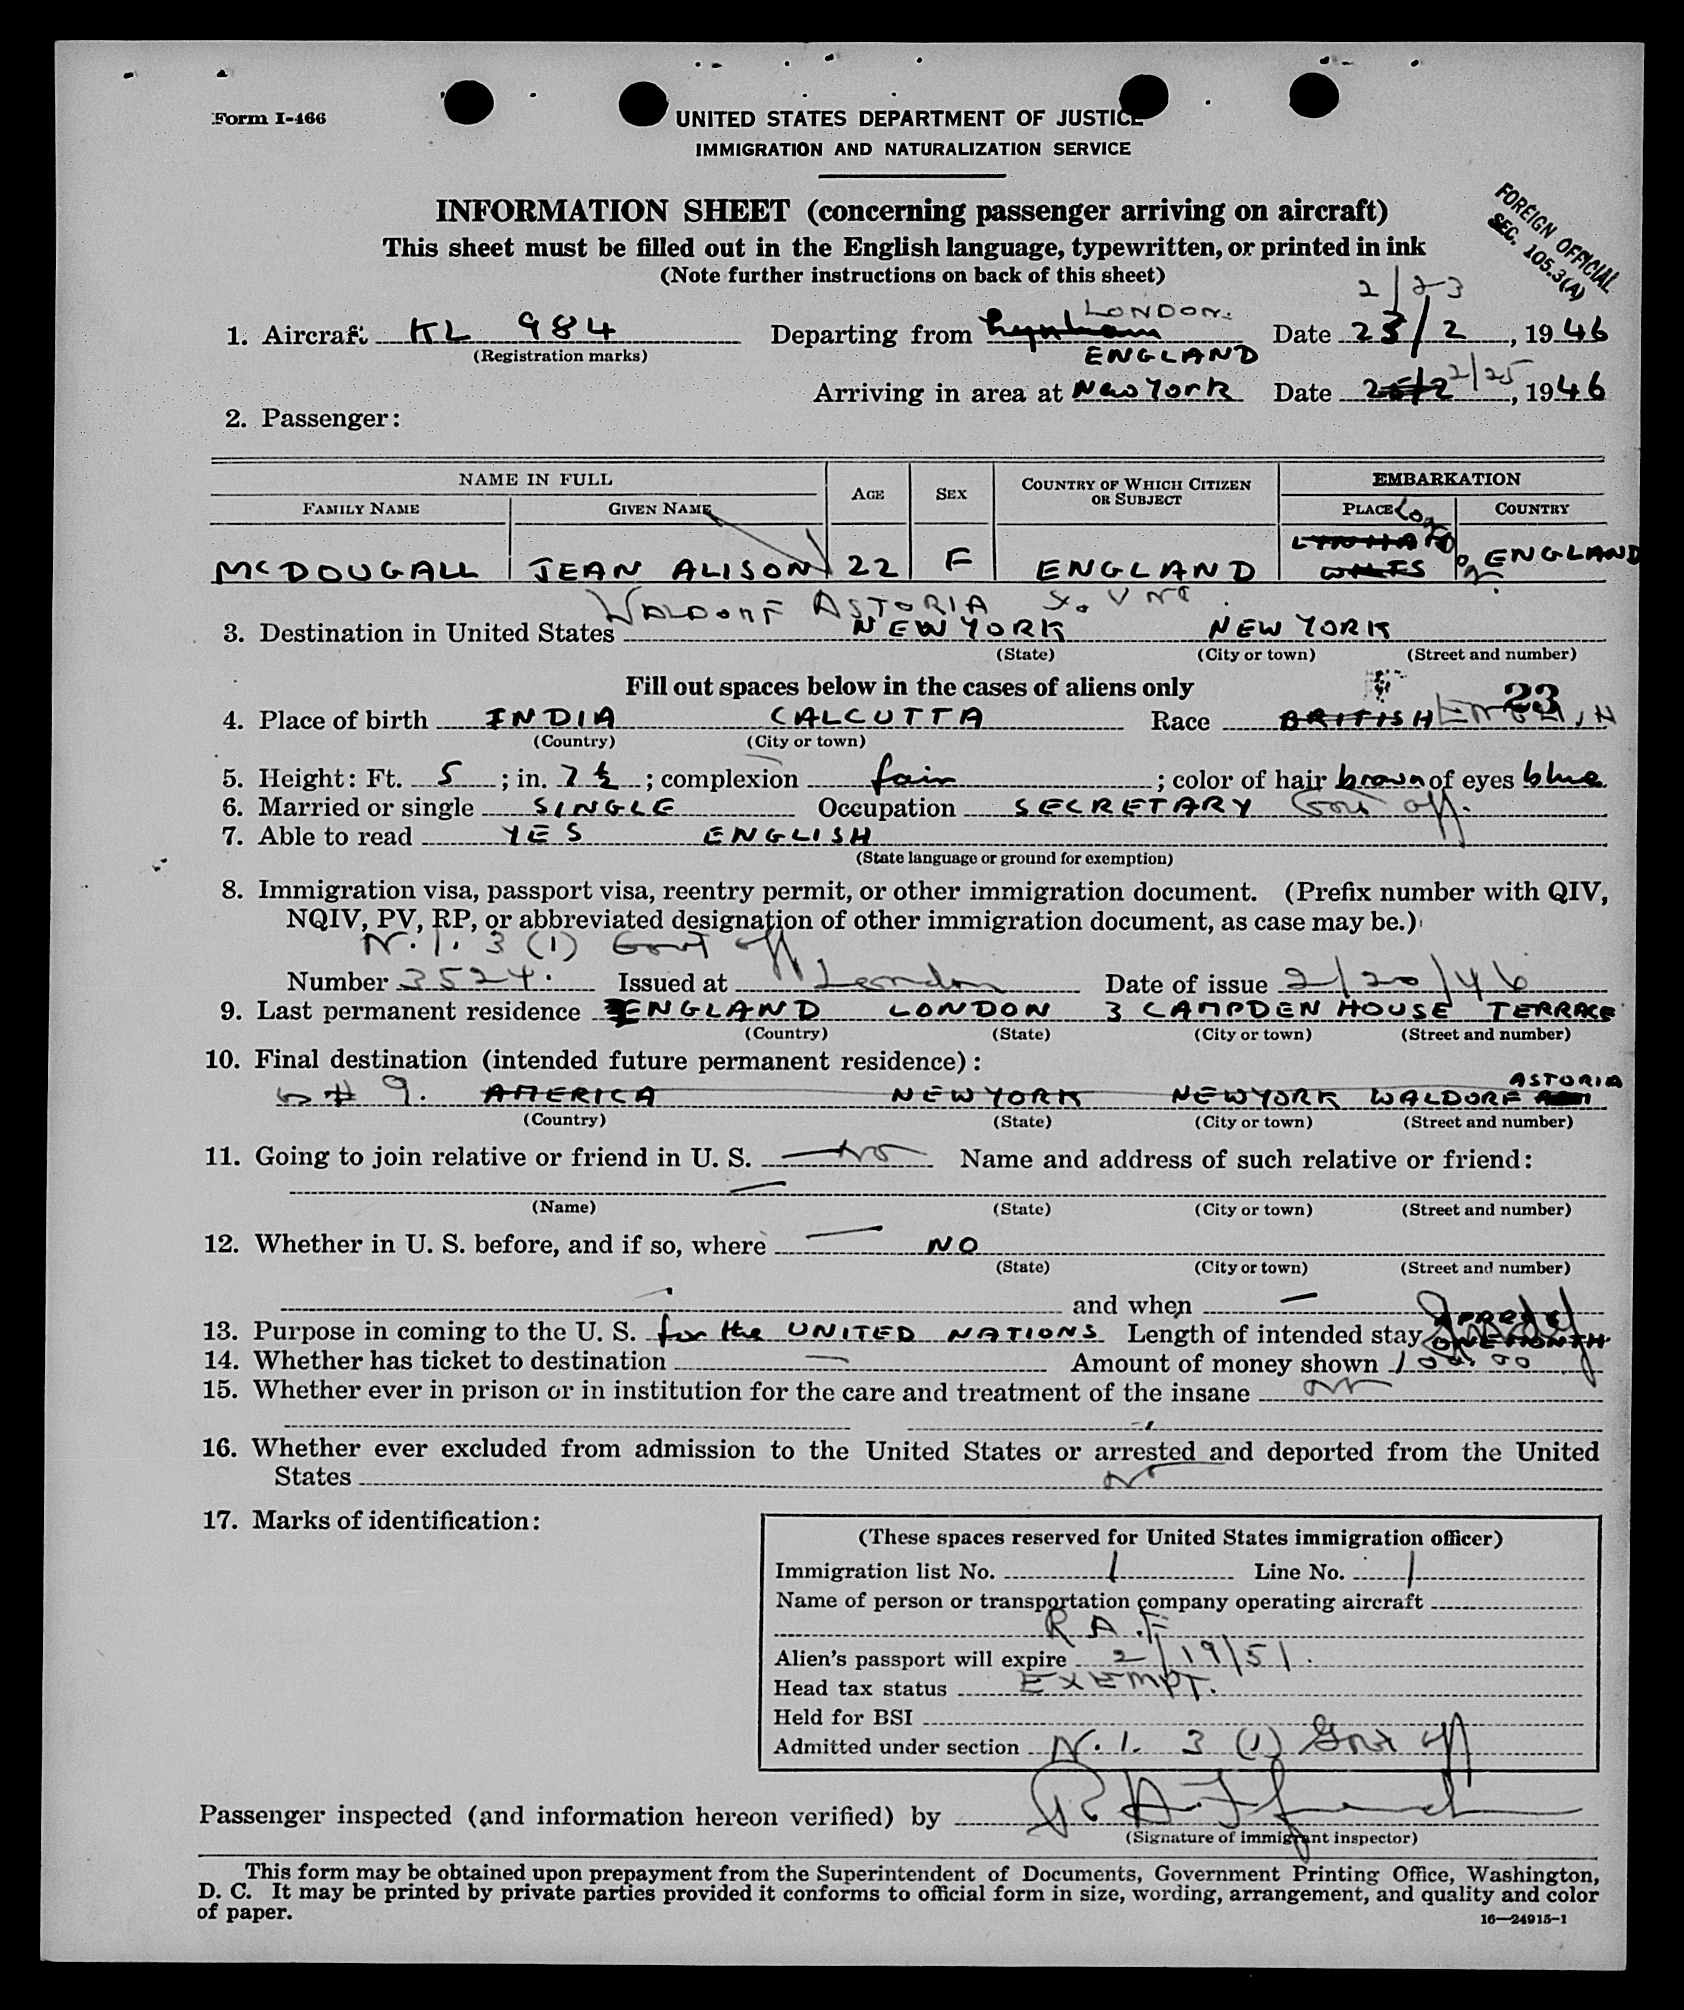 Form I-466
UNITED STATES DEPARTMENT OF JUSTICE
IMMIGRATION AND NATURALIZATION SERVICE
INFORMATION SHEET (concerning passenger arriving on aircraft)
This sheet must be filled out in the English language, typewritten, or printed in ink
(Note further instructions on back of this sheet)
FOREIGN OFFICIAL
SEC. 105.3(A)
LONDON. 2/23
1. Aircraft KL 984 Departing from Lynham Date 23/2, 1946
(Registration marks) ENGLAND
Arriving in area at New York Date 25/2 2/25, 1946
2. Passenger:
NAME IN FULL AGE SEX COUNTRY OF WHICH CITIZEN OR SUBJECT EMBARKATION
FAMILY NAME GIVEN NAME PLACE COUNTRY
McDOUGALL JEAN ALISON 22 F ENGLAND LYNHAM WILTS ENGLAND
WALDORF ASTORIA
3. Destination in United States NEW YORK NEW YORK
(State) (City or town) (Street and number)
Fill out spaces below in the cases of aliens only
23
4. Place of birth INDIA CALCUTTA Race BRITISH
(Country) (City or town)
5. Height: Ft. 5; in. 7 ½; complexion fair; color of hair brown of eyes blue
6. Married or single SINGLE Occupation SECRETARY Gov't off.
7. Able to read YES ENGLISH
(State language or ground for exemption)
8. Immigration visa, passport visa, reentry permit, or other immigration document. (Prefix number with QIV,
NQIV, PV, RP, or abbreviated designation of other immigration document, as case may be.)
N.I. 3 (1) Govt off
Number 3524. Issued at London Date of issue 2/20/46
9. Last permanent residence ENGLAND LONDON 3 CAMPDEN HOUSE TERRACE
(Country) (State) (City or town) (Street and number)
10. Final destination (intended future permanent residence):
# 9. AMERICA NEW YORK NEW YORK WALDORF ASTORIA
(Country) (State) (City or town) (Street and number)
11. Going to join relative or friend in U. S. No Name and address of such relative or friend:
(Name) (State) (City or town) (Street and number)
12. Whether in U. S. before, and if so, where NO
(State) (City or town) (Street and number)
and when —
13. Purpose in coming to the U. S. for the UNITED NATIONS Length of intended stay ONE MONTH
14. Whether has ticket to destination — Amount of money shown 100.00
15. Whether ever in prison or in institution for the care and treatment of the insane No
16. Whether ever excluded from admission to the United States or arrested and deported from the United
States No
17. Marks of identification:
(These spaces reserved for United States immigration officer)
Immigration list No. 1 Line No. 1
Name of person or transportation company operating aircraft
R.A.F.
Alien's passport will expire 2/19/51.
Head tax status EXEMPT.
Held for BSI
Admitted under section N.I. 3 (1) Gov't off
Passenger inspected (and information hereon verified) by
(Signature of immigrant inspector)
This form may be obtained upon prepayment from the Superintendent of Documents, Government Printing Office, Washington,
D. C. It may be printed by private parties provided it conforms to official form in size, wording, arrangement, and quality and color
of paper.
16—24915-1